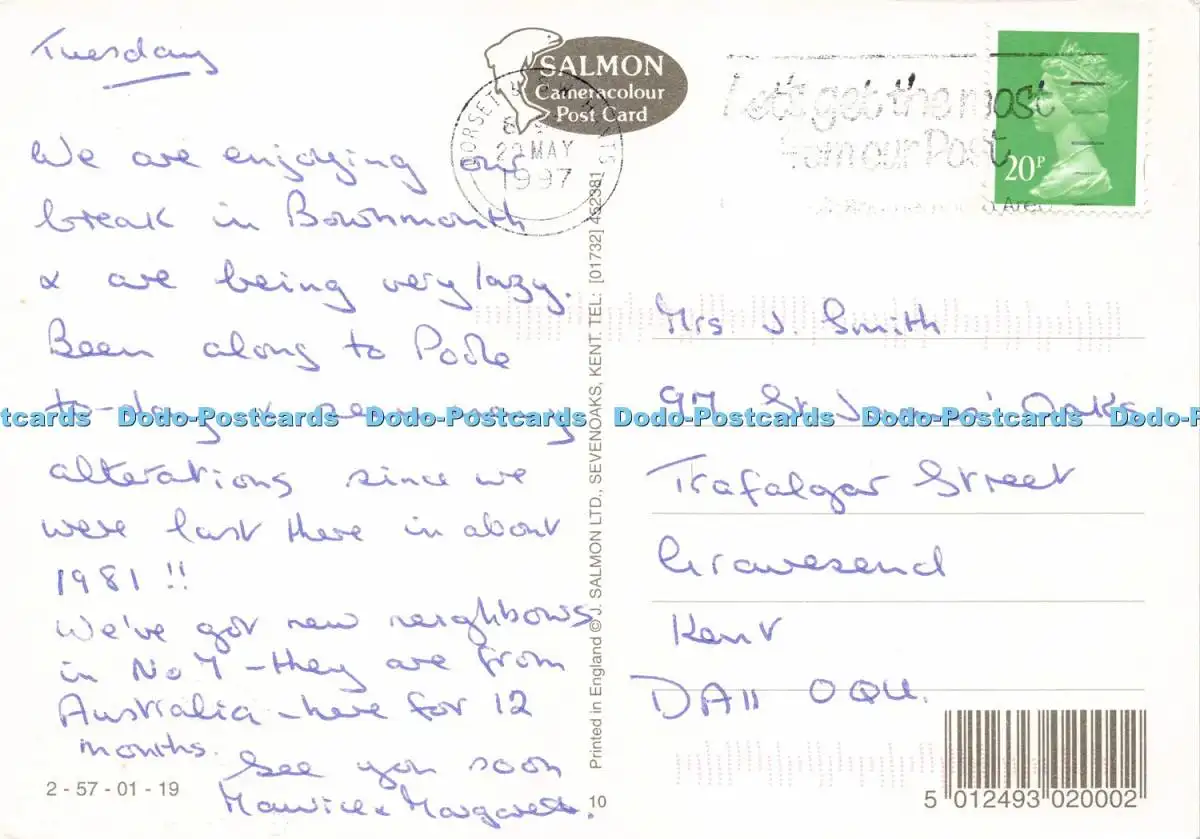 Tuesday
We are enjoying our
break in Bownmouth
& are being very lazy.
Been along to Poole
to-day & seen many
alterations since we
were last there in about
1981 !!
We've got new neighbours
in No 7 - they are from
Australia - here for 12
months.
See you soon
Maurice & Margaret.
2 - 57 - 01 - 19
SALMON
Cameracolour
Post Card
DORSET & S W HANTS
MAY
1997
Let's get the most
from our Post
20P
Printed in England © J. SALMON LTD., SEVENOAKS, KENT. TEL: [01732] 452381
10
Mrs J. Smith
97 St James' Oaks
Trafalgar Street
Gravesend
Kent
DA11 0QU.
5 012493 020002
Dodo-Postcards Dodo-Postcards Dodo-Postcards Dodo-Postcards